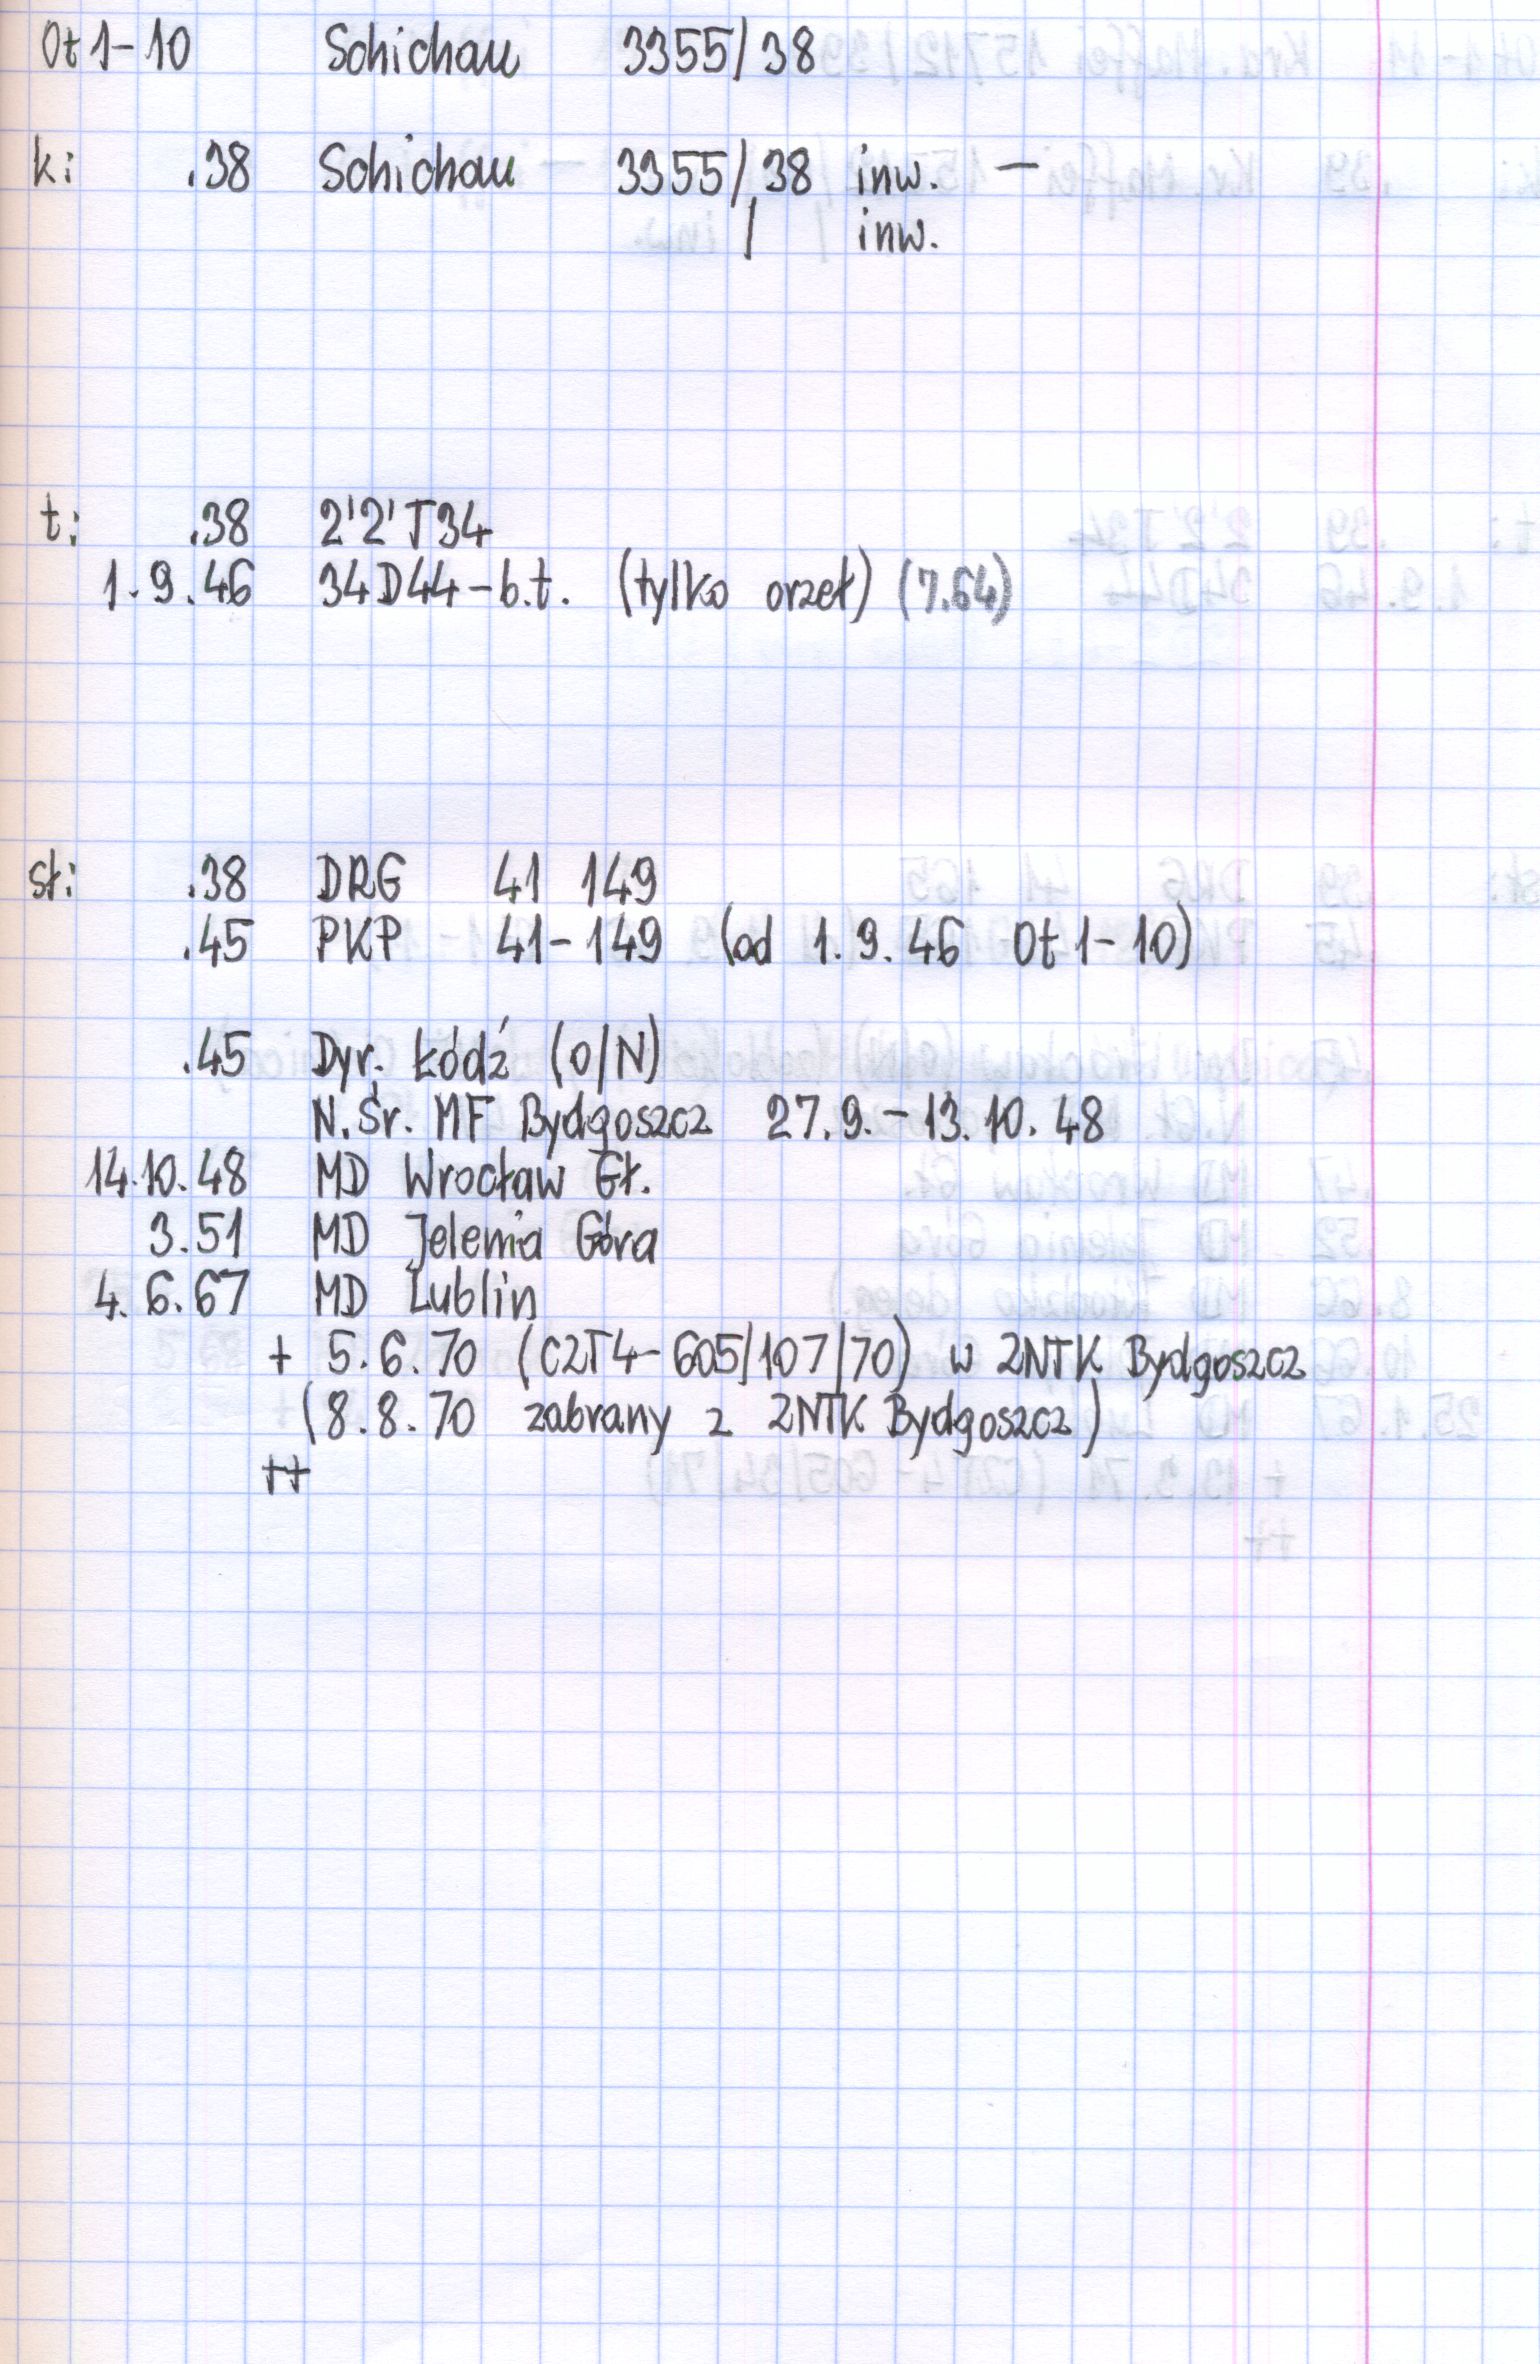 Ot 1-10 Schichau 3355/38
k: .38 Schichau 3355/38 inw. —
/ inw.
t: .38 2'2'T34
1.9.46 34D44-b.t. (tylko orzeł) (7.64)
sł: .38 DRG 41 149
.45 PKP 41-149 (od 1.9.46 Ot 1-10)
.45 Dyr. Łódź (O/N)
N.Śr. MF Bydgoszcz 27.9.-13.10.48
14.10.48 MD Wrocław Gł.
3.51 MD Jelenia Góra
4.6.67 MD Lublin
+ 5.6.70 (CZT4-605/107/70) w ZNTK Bydgoszcz
(8.8.70 zabrany z ZNTK Bydgoszcz)
++